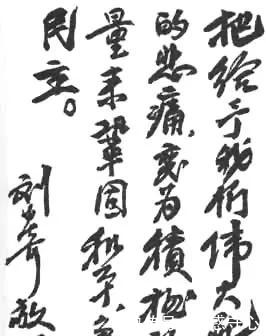 把给予我们伟大
的悲痛，变为积极
量来巩固和平
民主。
刘少奇敬